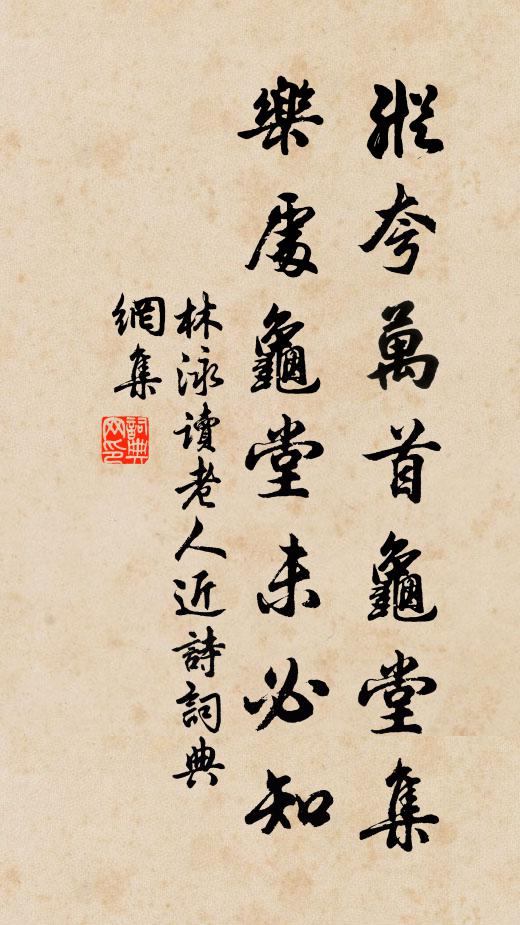 縱夸萬首龜堂集
樂處龜堂未必知
林泳讀老人近詩詞典
網集
詞典
网印